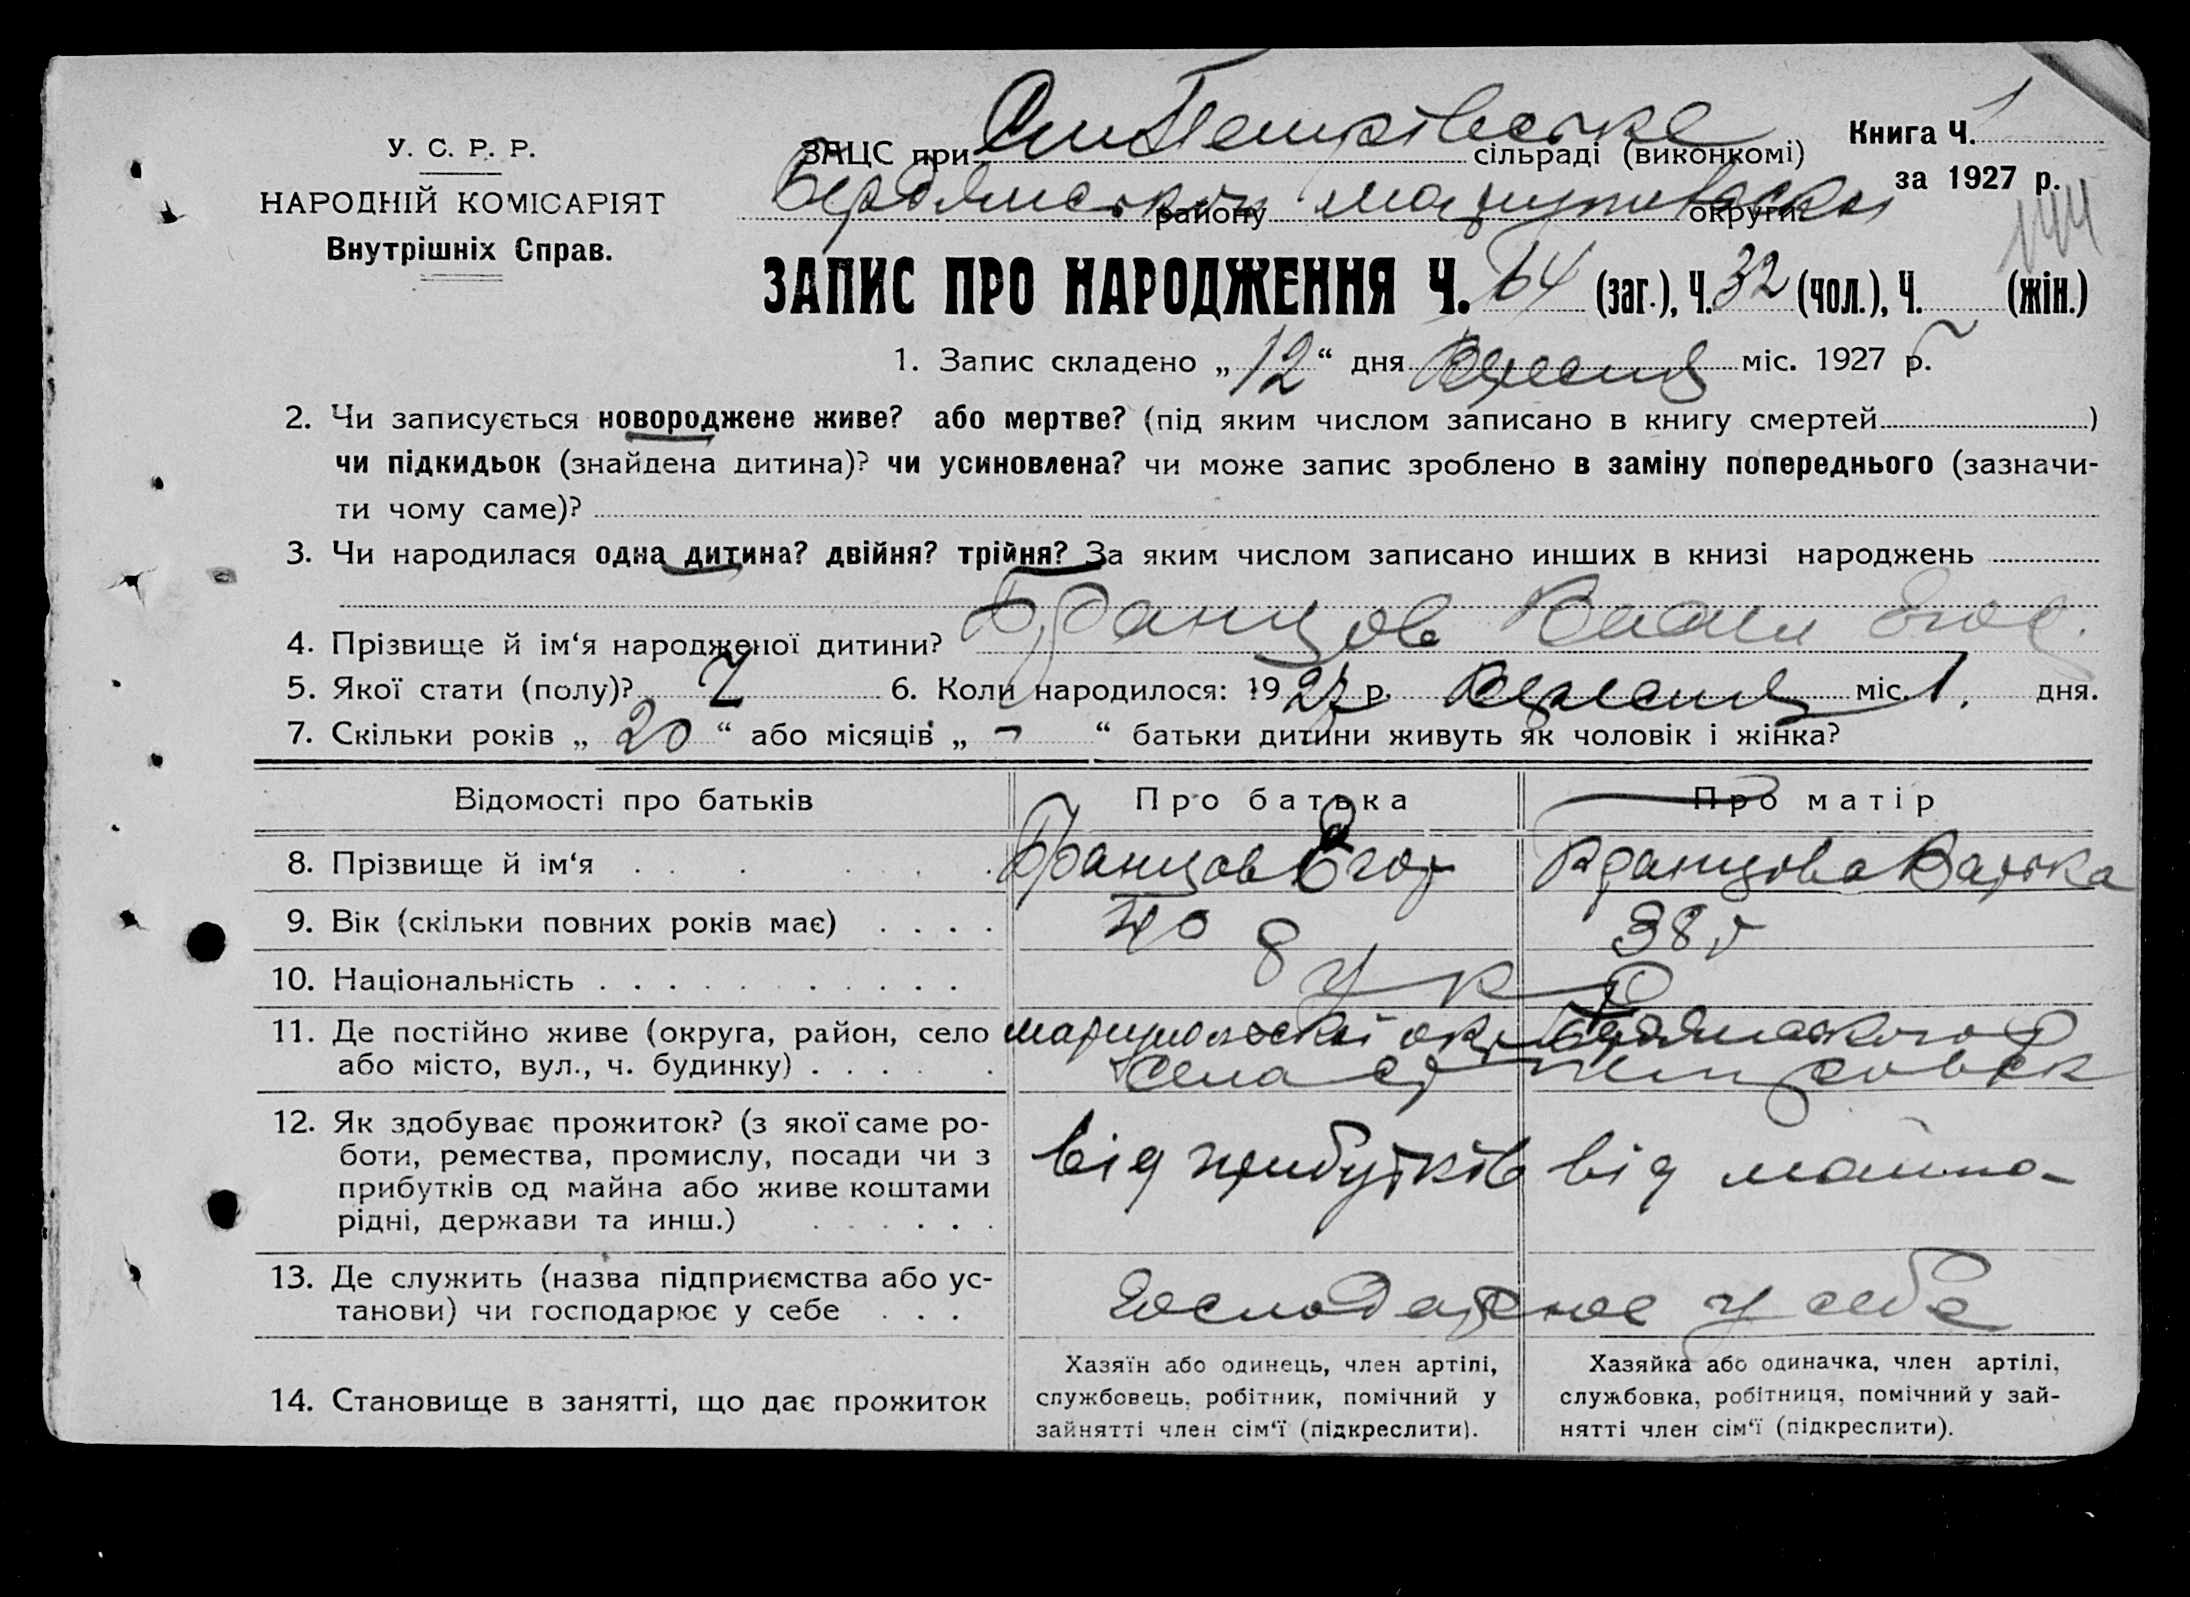 У. С. Р. Р.
НАРОДНІЙ КОМІСАРІЯТ
Внутрішніх Справ.
ЗАЦС при сільраді (виконкомі) Книга Ч. 1
району округи за 1927 р.
144
ЗАПИС ПРО НАРОДЖЕННЯ Ч. 64 (заг.), Ч. 32 (чол.), Ч. (жін.)
1. Запис складено „ 12 “ дня Вересня міс. 1927 р.
2. Чи записується новороджене живе? або мертве? (під яким числом записано в книгу смертей )
чи підкидьок (знайдена дитина)? чи усиновлена? чи може запис зроблено в заміну попереднього (зазначи-
ти чому саме)?
3. Чи народилася одна дитина? двійня? трійня? За яким числом записано инших в книзі народжень
4. Прізвище й ім‘я народженої дитини?
5. Якої стати (полу)? Ч 6. Коли народилося: 1927 р. Вересня міс. 1. дня.
7. Скільки років „ 20 “ або місяців „ - “ батьки дитини живуть як чоловік і жінка?
Відомості про батьків Про батька Про матір
8. Прізвище й ім‘я Егор Варка
9. Вік (скільки повних років має) 40 38 г
10. Національність укр
11. Де постійно живе (округа, район, село
або місто, вул., ч. будинку) села
12. Як здобуває прожиток? (з якої саме ро-
боти, ремества, промислу, посади чи з
прибутків од майна або живе коштами
рідні, держави та инш.) від прибутків від майна
13. Де служить (назва підприємства або ус-
танови) чи господарює у себе Господарює у себе
14. Становище в занятті, що дає прожиток
Хазяїн або одинець, член артілі,
службовець, робітник, помічний у
зайнятті член сім‘ї (підкреслити).
Хазяйка або одиначка, член артілі,
службовка, робітниця, помічний у зай-
нятті член сім‘ї (підкреслити).